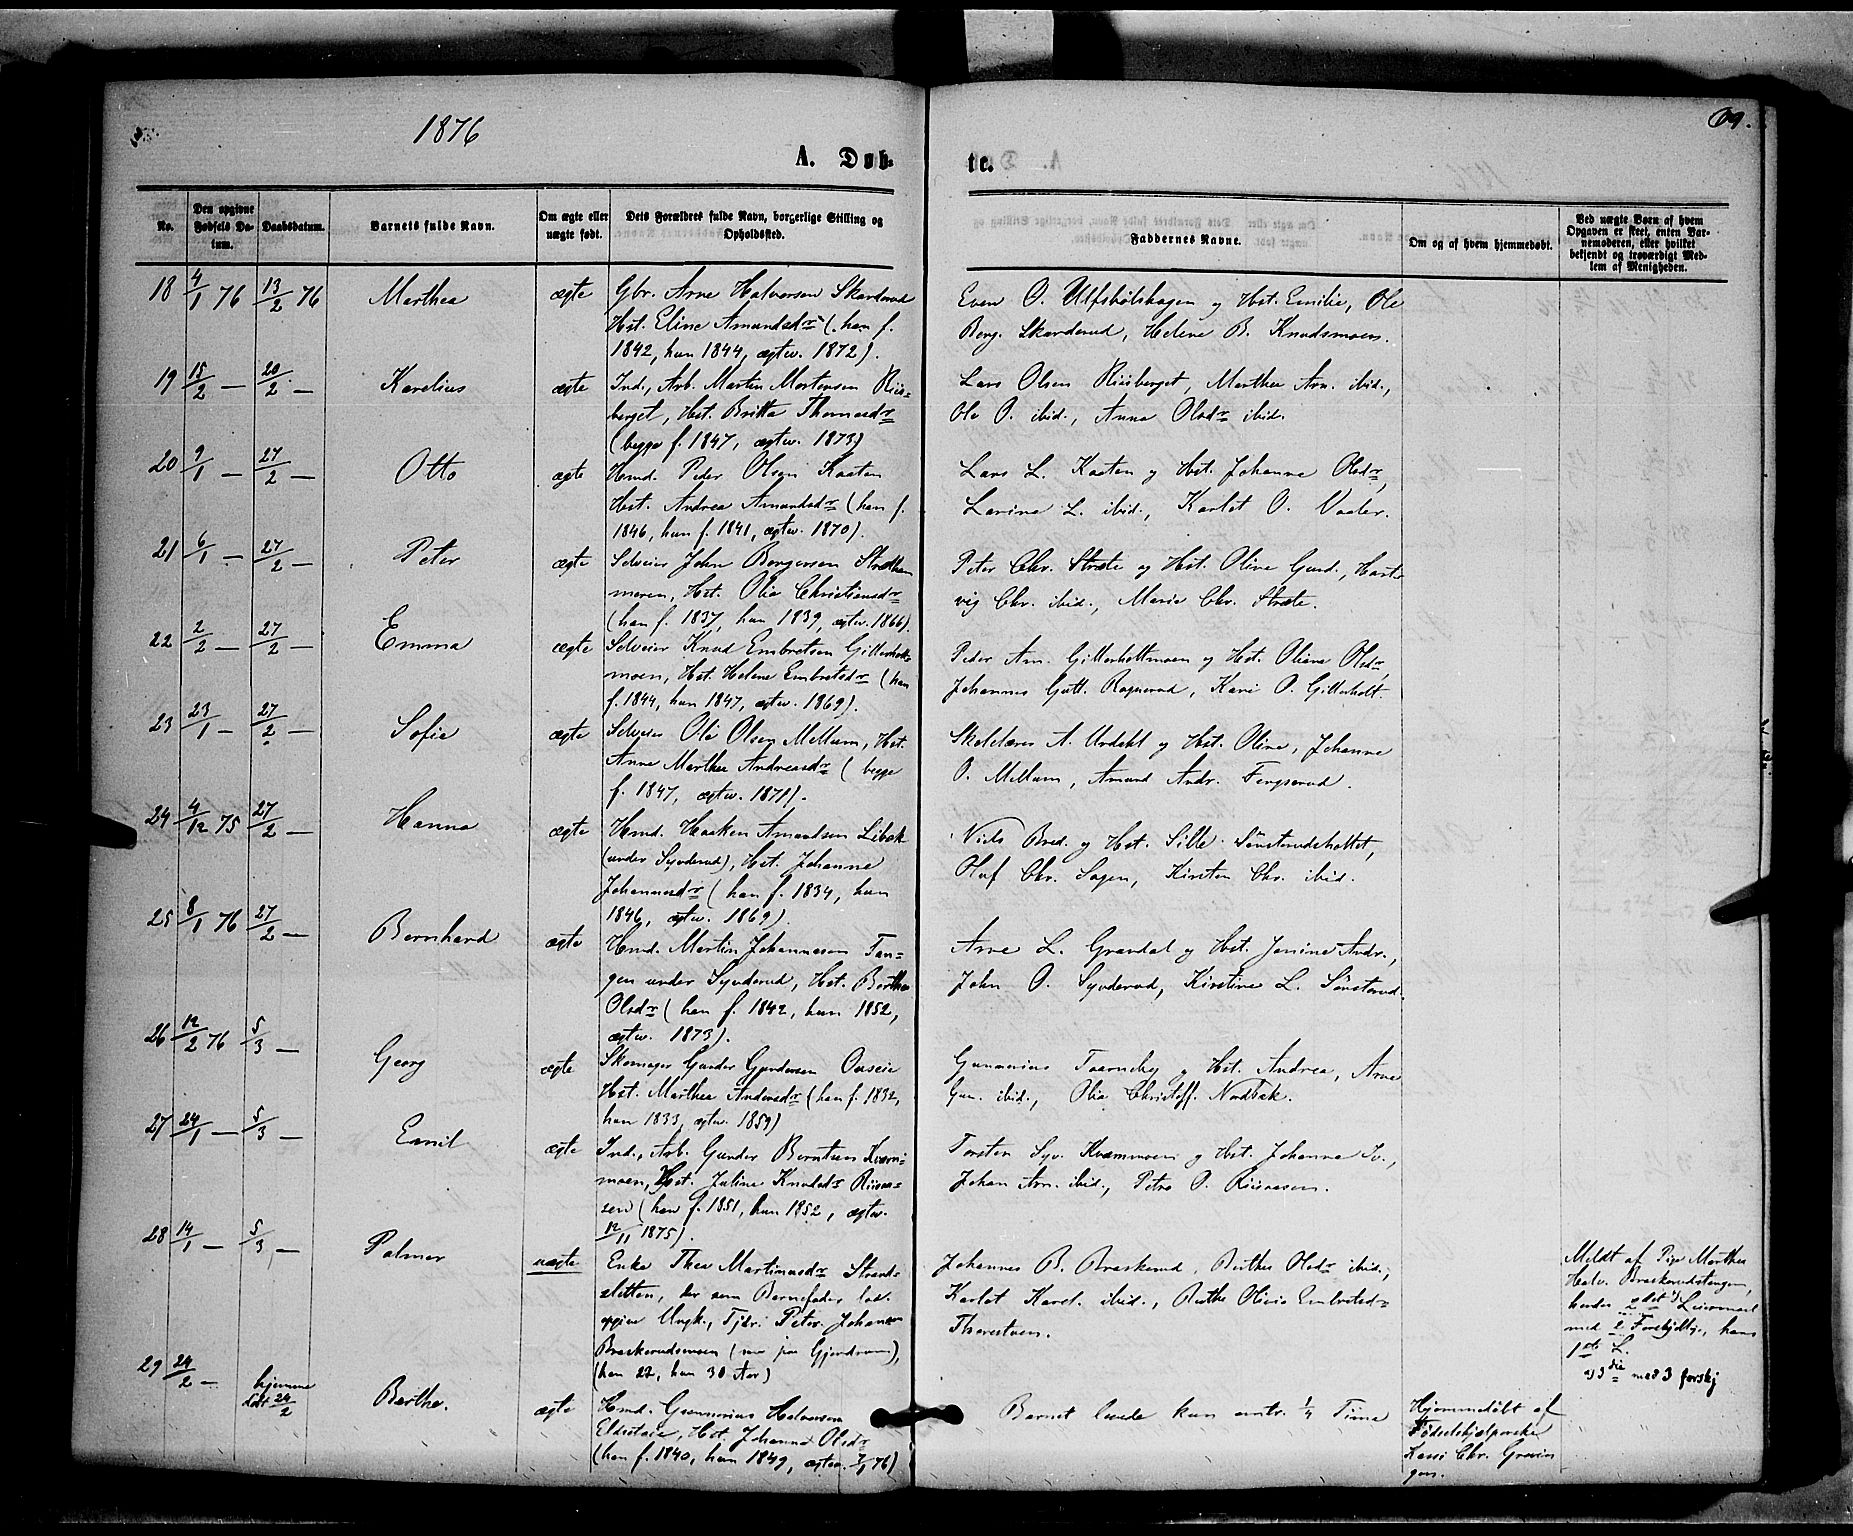 1876
69.
A. Døb-
te.
No.
Den opgivne Fødsels Da-tum.
Daabsdatum.
Barnets fulde Navn.
Om ægte eller uægte født.
Dets Forældres fulde Navn, borgerlige Stilling og Opholdssted.
Faddernes Navne.
Om og af hvem hjemmedøbt.
Ved uægte Børn af hvem Opgaven er skeet, enten Bar-nemoderen, eller hvilket bekjendt og troværdigt Med-lem af Menigheden.
18 4/1 76 13/2 76 Marthea ægte Gbr. Arne Halvorsen Skarderud
Hst. Eline Amundsdr (han f.
1842, hun 1844, ægtev. 1872).
Even O. Ulfsbølhagen og Hst. Emilie, Ole
Berg. Skarderud, Helene B. Knudsmoen.
19 15/2 — 20/2 — Karelius ægte Ind., Arb. Martin Mortensen Riis-
berget, Hst. Britta Thomasdr
(begge f. 1847, ægtev. 1873)
Lars Olsen Riisberget, Marthea Arn. ibid.,
Ole O. ibid., Anna Olsdr ibid.
20 9/1 — 27/2 — Otto ægte Hmd. Peder Olsen Kaaten
Hst. Andrea Amundsdr (han f.
1846, hun f. 1841, ægtev. 1870).
Lars L. Kaaten og Hst. Johanne Olsdr,
Larine L. ibid., Karlot O. Vaaler.
21 6/1 — 27/2 — Peter ægte Selveier John Borgersen Strætham
meren, Hst. Olia Christiansdr
(han f. 1837, hun 1839, ægtev. 1866).
Peter Chr. Stræte og Hst. Oline Gund., Hart-
vig Chr. ibid., Marie Chr. Stræte.
22 2/2 — 27/2 — Emma ægte Selveier Knud Embretsen Gitterholt-
moen, Hst. Helene Embretsdr (han
f. 1844, hun 1847, ægtev. 1869).
Peder Am. Gitterholtmoen og Hst. Oliane Olsdr,
Johannes Gutt. Rognerud, Kari O. Gitterholt.
23 23/1 — 27/2 — Sofie ægte Selveier Ole Olsen Mellum, Hst.
Anne Marthea Andreasdr (begge
f. 1847, ægtev. 1871).
Skolelærer A. Urdahl og Hst. Oline, Johanne
O. Mellum, Amund Andr. Fergserud.
24 4/12 75 27/2 — Hanna ægte Hmd. Haaken Amundsen Libak
(under Synderud), Hst. Johanne
Johannesdr (han f. 1834, hun
1846, ægtev. 1869).
Niels Bred. og Hst. Sille Sønsterudsholtet,
Oluf Chr. Sagen, Kirsten Chr. ibid.
25 8/1 76 27/2 — Bernhard ægte Hmd. Martin Johannesen Tan-
gen under Synderud, Hst. Berthe
Olsdr (han f. 1842, hun 1852,
ægtev. 1873).
Arne L. Grøndal og Hst. Jenine Andr.,
John O. Synderud, Kirstine L. Sønsterud.
26 12/2 76 5/3 — Georg ægte Skomager Gunder Gundersen
Hst. Marthea Andersdr (han f. 1832,
hun 1833, ægtev. 1859)
Gunnerius Taarneby og Hst. Andrea, Arne
Gun. ibid., Olia Christoff. Nordbak.
27 24/1 — 5/3 — Emil ægte Ind., Arb. Gunder Berntsen Kværn-
moen, Hst. Juline Knudsdr Riisaa-
sen (han f. 1851, hun 1852, ægtev.
12/11 1875).
Torsten Syv. Kvæmmoen og Hst. Johanna Iv.,
Johan Arn. ibid., Petra O. Riisaasen.
28 14/1 — 5/3 — Palmer uægte Enke Thea Martinusdr Strand-
sletten, der som Barnefader lod
opgive Ungk., Tjdr. Peter Johans.
Braskerudsmoen (nu paa Gjerdrum),
(han 22, hun 30 Aar)
Johannes B. Braskerud, Berthe Olsdr ibid.,
Karlot Karel. ibid., Berthe Olivie Embretsdr
Thorestuen.
Meldt af Pige Marthea
Halv. Braskerudstangen,
hendes 2det Leiermaal
med 2 Forskjellige, hans
1ste L.
29 24/2 — hjemme
døbt 24/2 Berthe. ægte Hmd. Gunnerius Halvorsen
Eldstøa, Hst. Johanne Olsdr
(han f. 1840, hun 1849, ægtev. 7/1 76)
Barnet levede kun omtr. 1/4 Time
Hjemmedøbt af
Fødselshjælperske
Kari Chr. Gravin
gen.